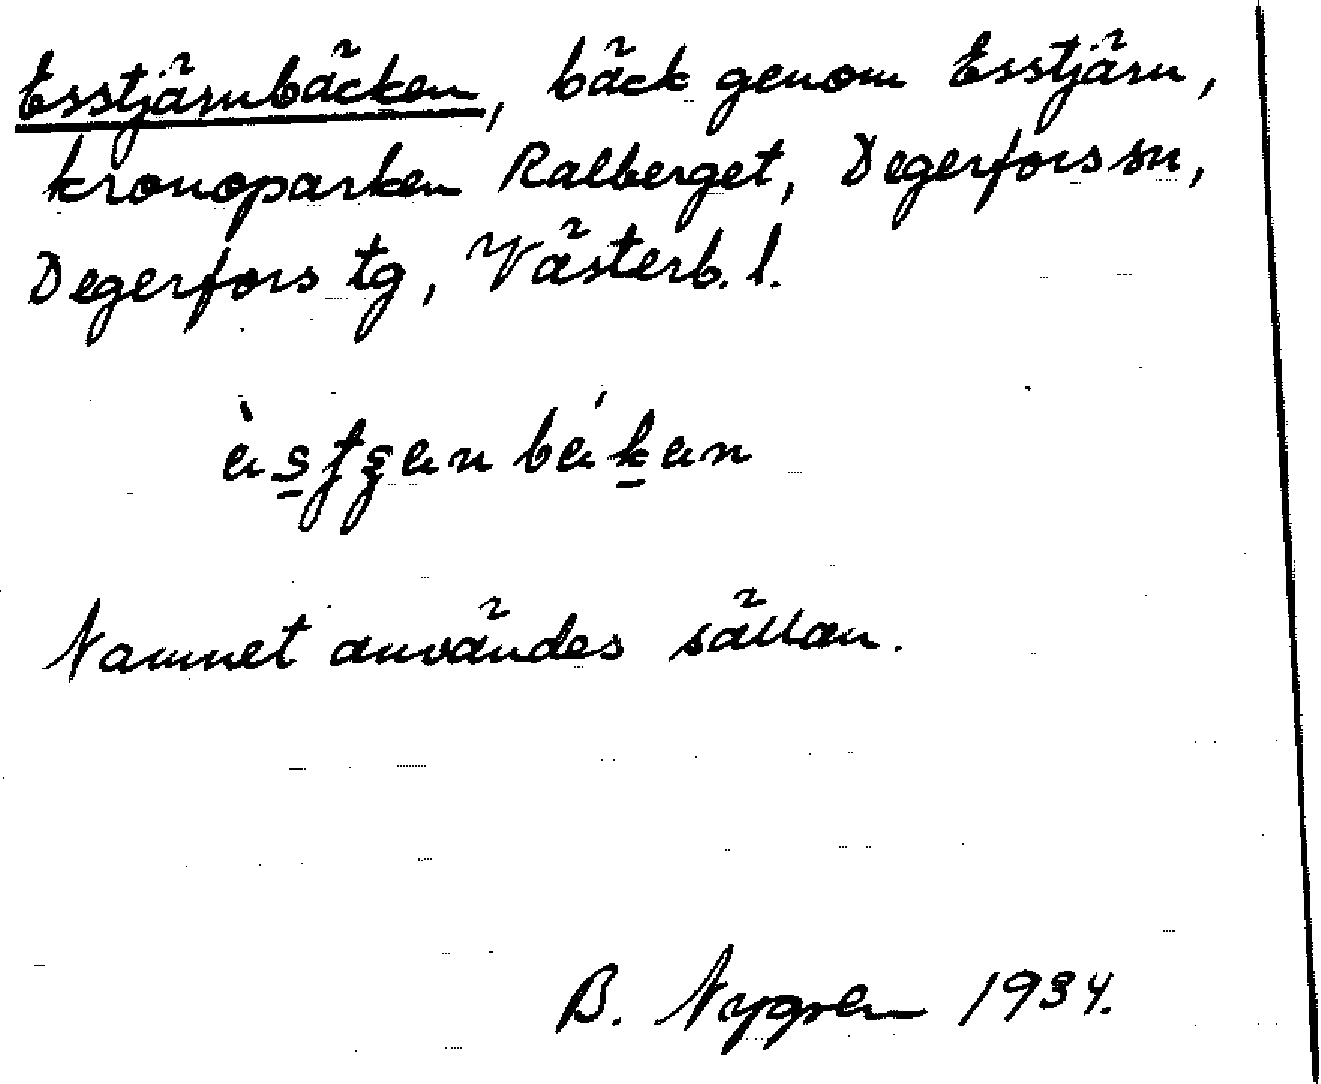 Esstjärnbäcken, bäck genom Esstjärn,
kronoparken Ralberget, Degerfors sn,
Degerfors tg, Västerb. l.
Namnet användes sällan.
B. Nygren 1934.